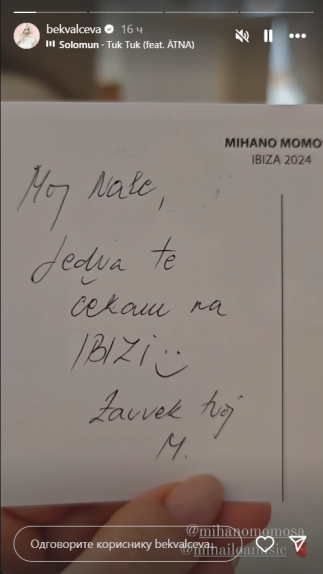 bekvalceva 16 ч
Solomun · Tuk Tuk (feat. ÄTNA)
MIHANO MOMO
IBIZA 2024
Moj Nale,
Jedva te
čekam na
IBIZI
Zauvek tvoj
M.
@mihanomomosa
Одговорите кориснику bekvalceva...